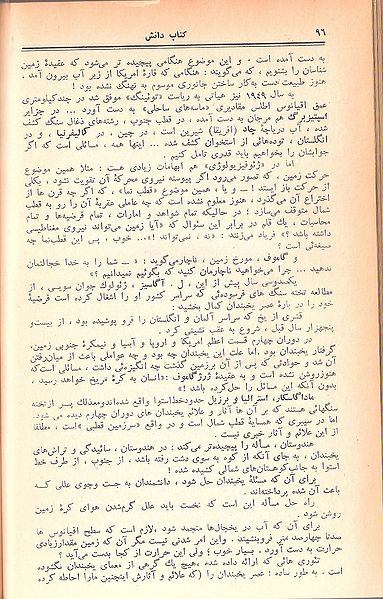 ۹۶
کتاب دانش
به دست آمده است . و این موضوع هنگامی پیچیده تر می‌شود که عقیدهٔ زمین
شناسان را بشنویم ، که می‌گویند : هنگامی که قارهٔ امریکا از زیر آب بیرون آمد ،
هنوز طبیعت دست به‌کار ساختن جانوری موسوم به نهنگ نشده بود !
به سال ۱۹۴۹ نیز هیأتی به ریاست «توئینگ» موفق شد در چند کیلومتری
عمق اقیانوس اطلس مقادیری «ماسه‌های ساحلی» به دست آورد ... در جزایر
استیزبرگ هم مرجان به دست آمده ، در قطب جنوب ، رشته‌های ذغال سنگ کشف
شده ، آب دریاچهٔ چاد (افریقا) شیرین است ، در چین ، در کالیفرنیا ، و در
انگلستان ، توده‌هائی از استخوان کشف شده ... اینها همه ، مسائلی است که اگر
جوابشان را بخواهیم باید قدری تأمل کنیم .
اما در «ژئوفیزیولوژی» هم ابهامات زیادی هست : مثلا همین موضوع
حرکت زمین ، که تصور می‌رود اگر پیوسته نیروی محرکهٔ آن تقویت نشود ، بکلی
از حرکت باز ایستد : ــ و یا ، همین موضوع «قطب نما» ، که اگر چه قرن ها از
اختراع آن می‌گذرد ، هنوز معلوم نشده است که چه عاملی عقربهٔ آن را رو به قطب
شمال متوقف می‌سازد ؛ در حالیکه تمام شواهد و امارات ، تمام فرضیه‌ها و تمام
محاسبات ، یك قلم در برابر این سئوال که «آیا زمین می‌تواند نیروی مغناطیسی
داشته باشد ؟» فریاد میزنند : «نه ، نمی‌تواند !»... خوب ، پس این قطب‌نما چه
صیغه‌ئی است ؟
و گاموف ، مورخ زمین ، ناچار می‌گوید : « ــ شما را به خدا خجالتمان
ندهید ... چرا می‌خواهید ناچارمان کنید که بگوئیم نمیدانیم ؟»
یکصد و سی سال پیش از این ، ل . آگاسیز ، ژئولوگ جوان سویسی ، از
مطالعه تخته سنگ های فرسوده‌ئی که سراسر کشور او را اشغال کرده است فرضیهٔ
خود را در بارهٔ عصر یخبندان کمال بخشید .
قشری از یخ که سراسر آلمان و انگلستان را فرو پوشیده بود ، از بیست و
پنجهزار سال قبل ، شروع به عقب نشینی کرد .
در دوران چهارم قسمت اعظم امریکا و اروپا و آسیا و نیمکرهٔ جنوبی زمین،
گرفتار یخبندان بود. اما علت این یخبندان چه بود و چه عواملی باعث از میان‌رفتن
آن شد و حوادثی که پس از آن بر زمین گذشت چه انگیزه‌ئی داشت ، مسائلی است‌که
هنوز روشن نشده است و به عقیدهٔ ژرژ گاموف : «انسان به کرهٔ مریخ خواهد رسید ،
بدون آنکه این مسائل را حل‌کرده باشد !»
ماداگاسکار، استرالیا و برزیل در حدود خط‌استوا واقع شده‌اند و معذلك پر از تخته
سنگهائی هستند که بر آن ها آثار و علائم یخبندان های دوران چهارم دیده می شود.
اما در سیبری که همسایهٔ قطب شمال است و در واقع «سرزمین قطبی» است ، مطلقا
از این علائم و آثار خبری نیست .
هندوستان ، مسأله را پیچیده‌تر می‌کند : در هندوستان ، سائیدگی و تراش‌های
یخبندان ، به جای آنکه از کوه به سوی دشت رفته باشد ، از جنوب ، از طرف خط
استوا به جانب‌کوهستان‌های شمالی کشیده شده !
برای آن که مسئلهٔ یخبندان حل شود ، دانشمندان به جست و جوی عللی کـه
باعث آن شده پرداخته‌اند .
راه حل مسأله این است که نخست باید علل گرم‌شدن هوای کرهٔ زمین
روشن شود .
برای آن که آب در یخچال‌ها منجمد شود ، لازم است که سطح اقیانوس ها
صد تا چهارصد متر فرو بنشیند . و این امر شدنی نیست مگر آن که زمین مقدار زیادی
حرارت به دست آورد . بسیار خوب ؛ ولی این حرارت از کجا بدست می‌آید ؟
تئوری هائی که ارائه داده شده ، هیچ یك گرهی از معمای یخبندان نگشوده
است . به طور ساده : عصر یخبندان را (که علائم و آثارش اینچنین ما را احاطه کرده